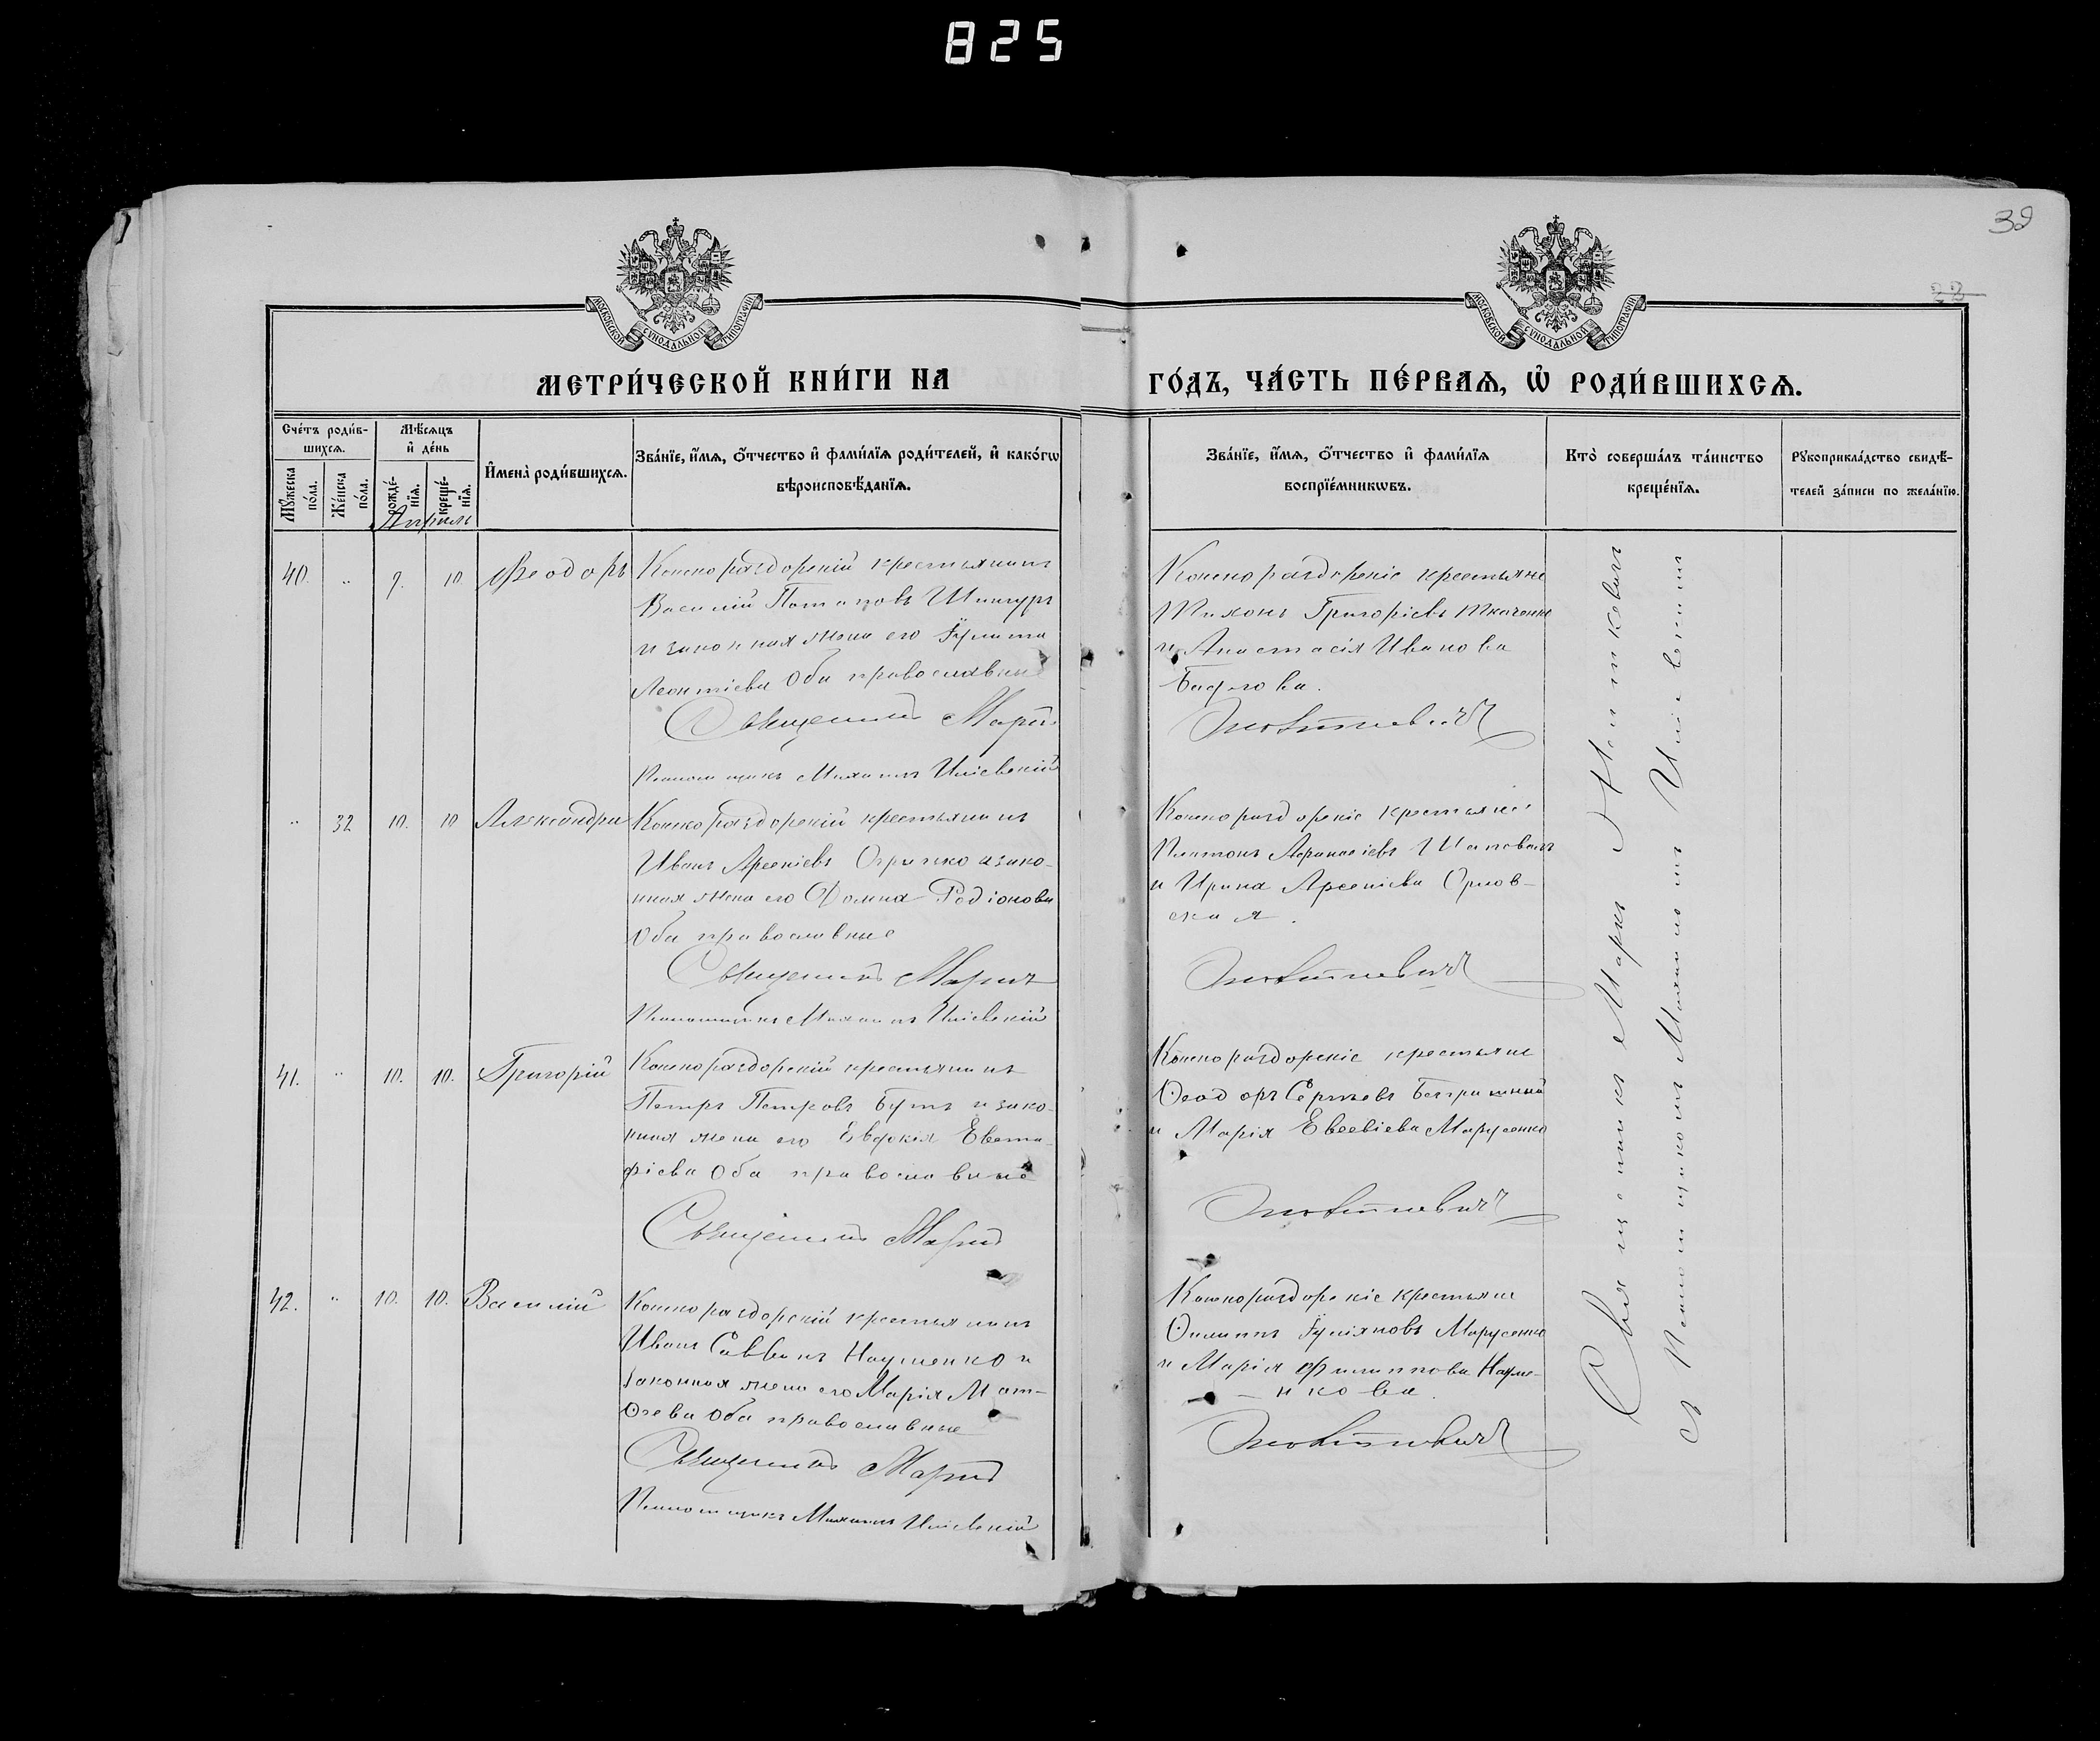 825
39
22
МОСКОВСКОЙ СѴНОДАЛЬНОЙ ТИПОГРАФІИ
МОСКОВСКОЙ СѴНОДАЛЬНОЙ ТИПОГРАФІИ
МЕТРИ́ЧЕСКОЙ КНИ́ГИ НА
ГО́ДЪ, ЧА́СТЬ ПЕ́РВАѦ, Ѽ РОДИ́ВШИХСѦ.
Сче́тъ роди́в-
шихсѧ.
Мꙋ́жеска по́ла.
Же́нска по́ла.
Мѣ́сѧцъ
и҆ де́нь
рожде́-
нїѧ.
креще́-
нїѧ.
И҆мена̀ роди́вшихсѧ.
Зва́нїе, и҆́мѧ, ѻ҆́тчество и҆ фами́лїѧ роди́телей, и҆ како́гѡ
вѣроисповѣ́данїѧ.
Зва́нїе, и҆́мѧ, ѻ҆́тчество и҆ фами́лїѧ
воспрїе́мникѡвъ.
Кто̀ соверша́лъ та́инство
креще́нїѧ.
Рꙋкоприкла́дство свидѣ́-
телей за́писи по жела́нїю.
Апрель
40. " 7. 10 Ѳеодоръ
Конскораздорскій крестьянинъ
Василій Потаповъ Шингуръ
и законная жена его Іулита
Леонтіева Оба православные
Священникъ Маркъ
Псаломщикъ Михаилъ
Конскораздорскіе крестьяне
Тихонъ Григоріевъ Ткаченко
и Анастасія Иванова
" 32 10. 10 Александра
Конскораздорскій крестьянинъ
Иванъ Арсеніевъ и зако-
нная жена его Домна Родіонова
Оба православные
Священникъ Маркъ
Псаломщикъ Михаилъ
Конскораздорскіе крестьяне
Платонъ Афанасіевъ Шаповалъ
и Ирина Арсеніева Орлов-
ская.
41. " 10. 10. Григорій
Конскораздорскій крестьянинъ
Петръ Петровъ Бутъ и зако-
нная жена его Евдокія Евста-
фіева Оба православные
Священникъ Маркъ
Конскораздорскіе крестьяне
Ѳеодоръ Сергѣевъ
и Марія Евсевіева Марусенко
42. " 10. 10. Василій
Конскораздорскій крестьянинъ
Иванъ Саввинъ Науменко и
законная жена его Марія Мат-
ѳеева Оба православные
Священникъ Маркъ
Псаломщикъ Михаилъ
Конскораздорскіе крестьяне
Филиппъ Іуліановъ Марусенко
и Марія Филиппова Науме-
нкова.
Священникъ Маркъ
съ Псаломщикомъ Михаиломъ